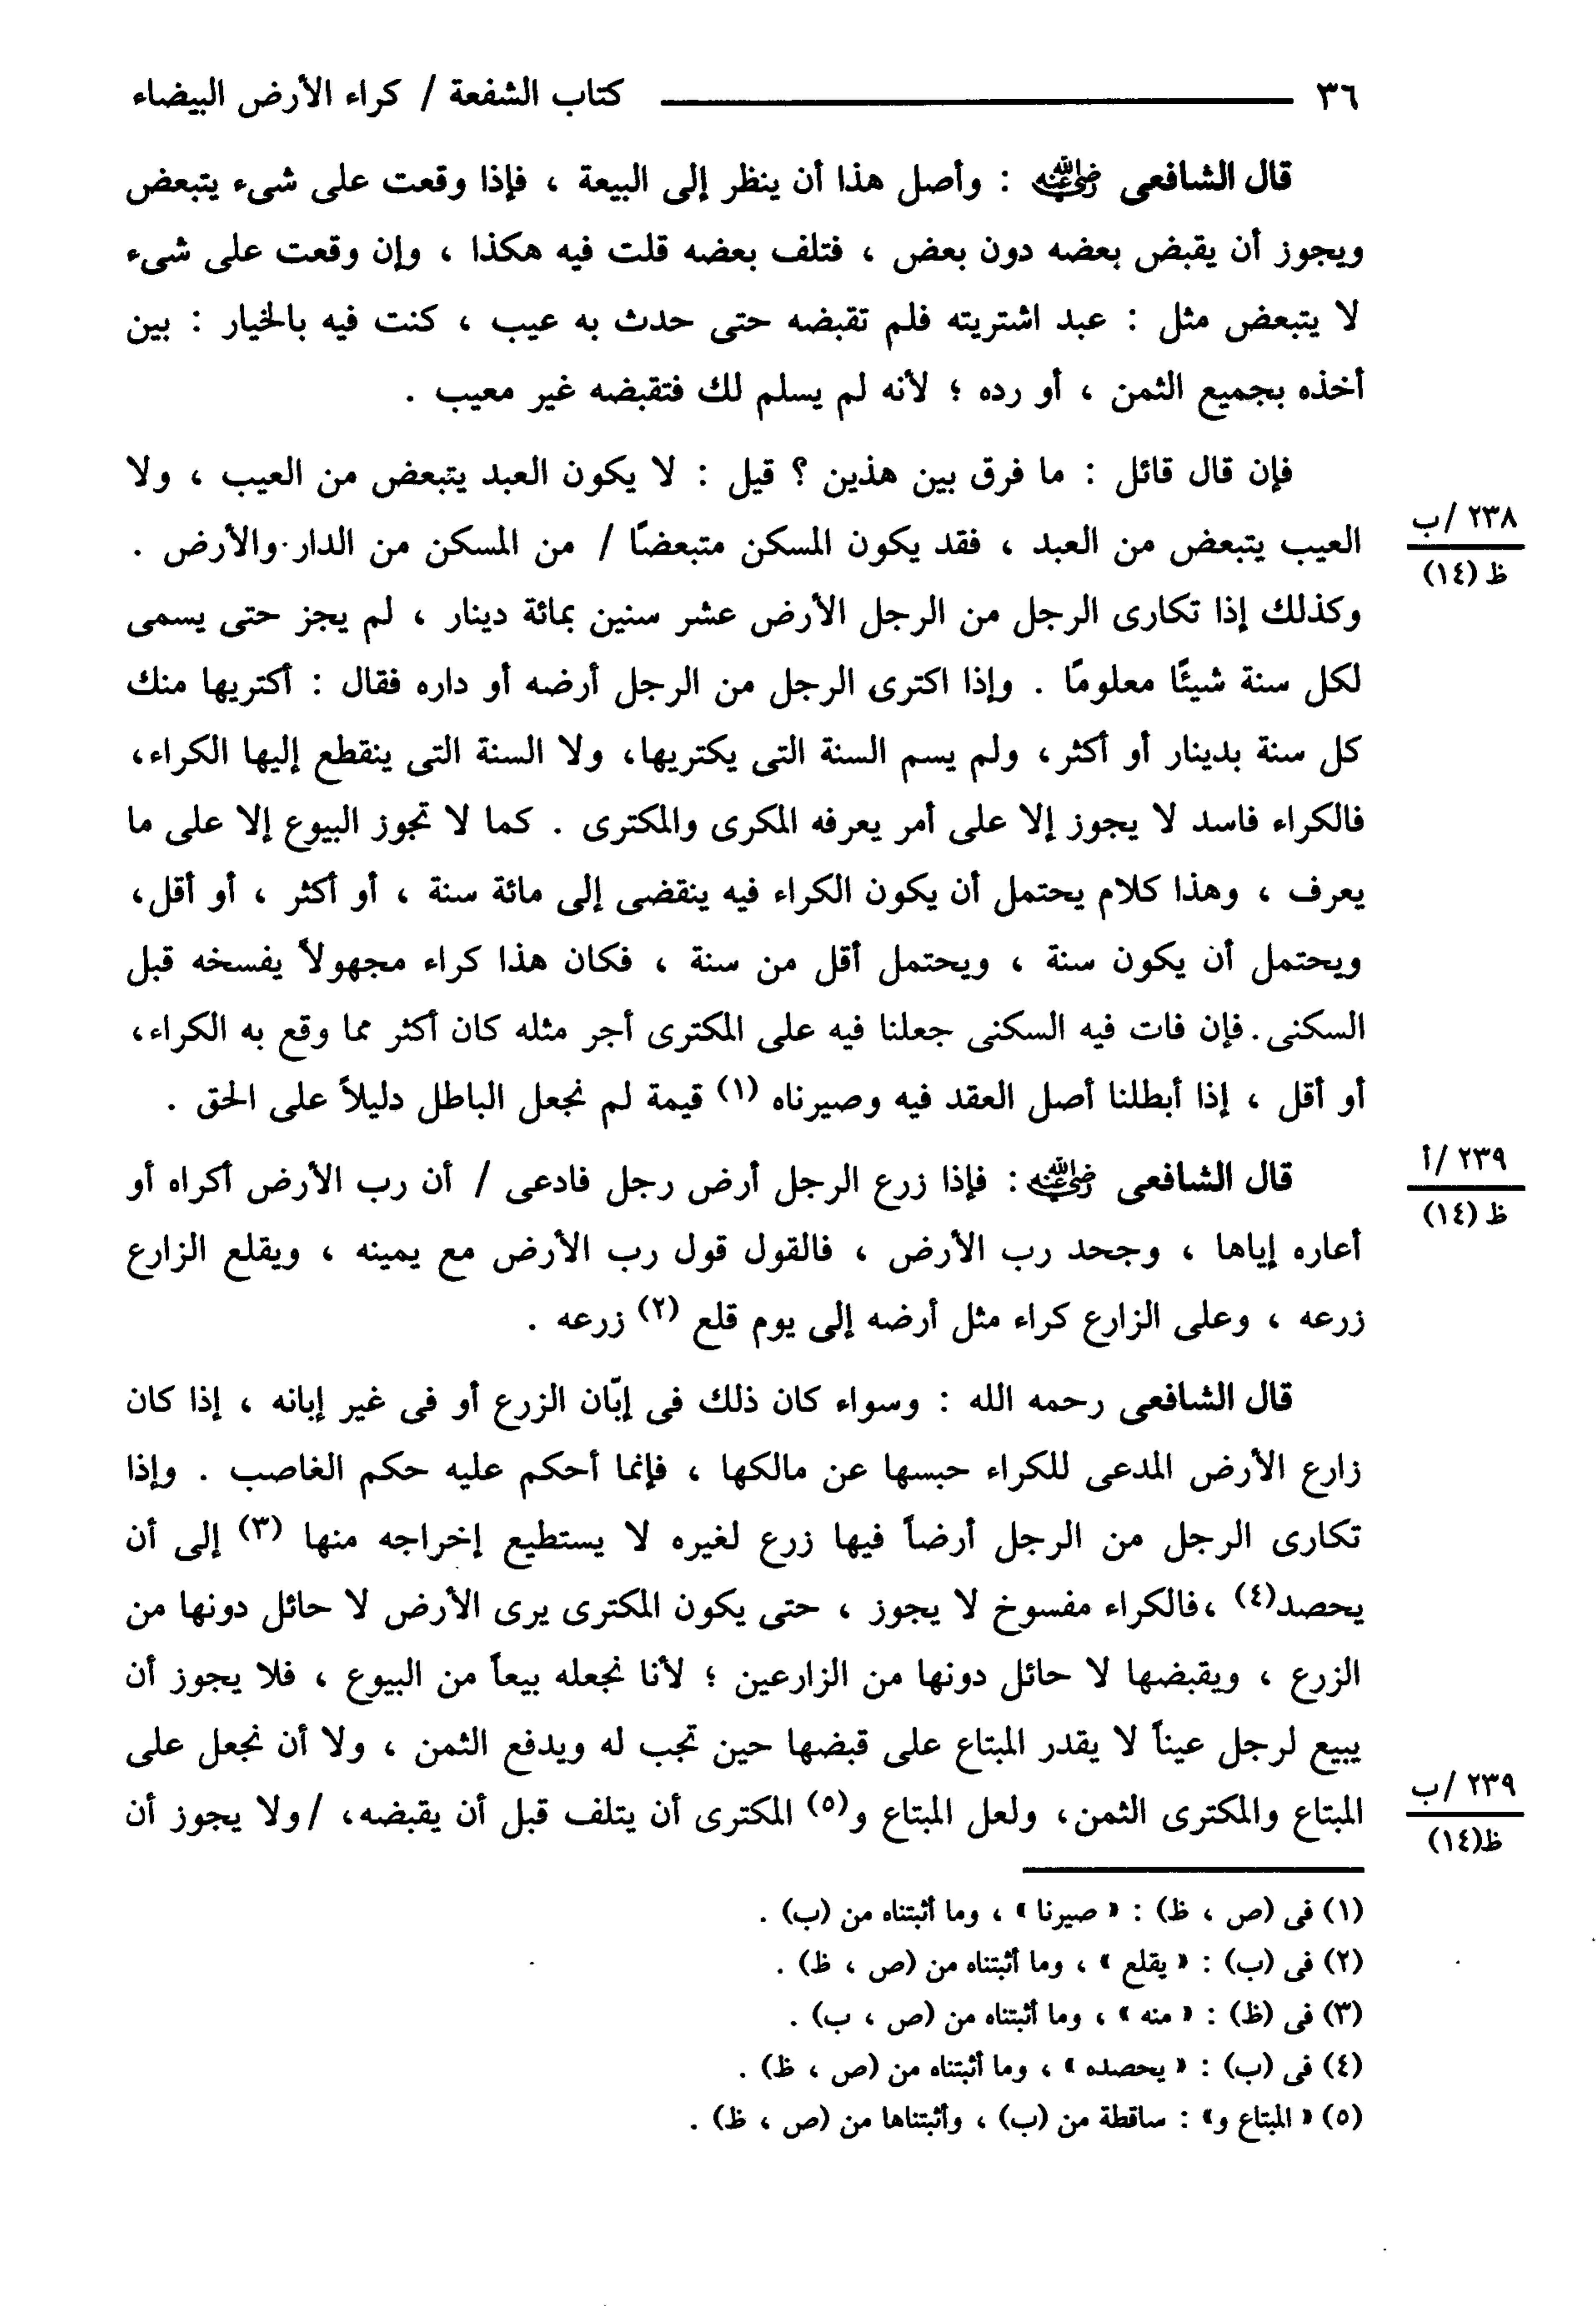 ٣٦ ــــــــــــــــ كتاب الشفعة / كراء الأرض البيضاء
قال الشافعى رضي الله عنه : وأصل هذا أن ينظر إلى البيعة ، فإذا وقعت على شىء يتبعض
ويجوز أن يقبض بعضه دون بعض ، فتلف بعضه قلت فيه هكذا ، وإن وقعت على شىء
لا يتبعض مثل : عبد اشتريته فلم تقبضه حتى حدث به عيب ، كنت فيه بالخيار : بين
أخذه بجميع الثمن ، أو رده ؛ لأنه لم يسلم لك فتقبضه غير معيب .
فإن قال قائل : ما فرق بين هذين ؟ قيل : لا يكون العبد يتبعض من العيب ، ولا
٢٣٨ /ب
العيب يتبعض من العبد ، فقد يكون المسكن متبعضًا / من المسكن من الدار والأرض .
ظ (١٤)
وكذلك إذا تكارى الرجل من الرجل الأرض عشر سنين بمائة دينار ، لم يجز حتى يسمى
لكل سنة شيئًا معلومًا . وإذا اكترى الرجل من الرجل أرضه أو داره فقال : أكتريها منك
كل سنة بدينار أو أكثر، ولم يسم السنة التى يكتريها، ولا السنة التى ينقطع إليها الكراء،
فالكراء فاسد لا يجوز إلا على أمر يعرفه المكرى والمكترى . كما لا تجوز البيوع إلا على ما
يعرف ، وهذا كلام يحتمل أن يكون الكراء فيه ينقضى إلى مائة سنة ، أو أكثر ، أو أقل،
ويحتمل أن يكون سنة ، ويحتمل أقل من سنة ، فكان هذا كراء مجهولاً يفسخه قبل
السكنى . فإن فات فيه السكنى جعلنا فيه على المكترى أجر مثله كان أكثر مما وقع به الكراء،
أو أقل ، إذا أبطلنا أصل العقد فيه وصيرناه (١) قيمة لم نجعل الباطل دليلاً على الحق .
٢٣٩ /أ
قال الشافعى رضي الله عنه : فإذا زرع الرجل أرض رجل فادعى / أن رب الأرض أكراه أو
ظ (١٤)
أعاره إياها ، وجحد رب الأرض ، فالقول قول رب الأرض مع يمينه ، ويقلع الزارع
زرعه ، وعلى الزارع كراء مثل أرضه إلى يوم قلع (٢) زرعه .
قال الشافعى رحمه الله : وسواء كان ذلك فى إبّان الزرع أو فى غير إبانه ، إذا كان
زارع الأرض المدعى للكراء حبسها عن مالكها ، فإنما أحكم عليه حكم الغاصب . وإذا
تكارى الرجل من الرجل أرضاً فيها زرع لغيره لا يستطيع إخراجه منها (٣) إلى أن
يحصد(٤) ، فالكراء مفسوخ لا يجوز ، حتى يكون المكترى يرى الأرض لا حائل دونها من
الزرع ، ويقبضها لا حائل دونها من الزارعين ؛ لأنا نجعله بيعاً من البيوع ، فلا يجوز أن
يبيع لرجل عيناً لا يقدر المبتاع على قبضها حين تجب له ويدفع الثمن ، ولا أن نجعل على
٢٣٩ /ب
المبتاع والمكترى الثمن، ولعل المبتاع و(٥) المكترى أن يتلف قبل أن يقبضه، /ولا يجوز أن
ظ(١٤)
(١) فى (ص ، ظ) : « صيرنا » ، وما أثبتناه من (ب) .
(٢) فى (ب) : « يقلع » ، وما أثبتناه من (ص ، ظ) .
(٣) فى (ظ) : « منه » ، وما أثبتناه من (ص ، ب) .
(٤) فى (ب) : « يحصده » ، وما أثبتناه من (ص ، ظ) .
(٥) « المبتاع و» : ساقطة من (ب) ، وأثبتناها من (ص ، ظ) .